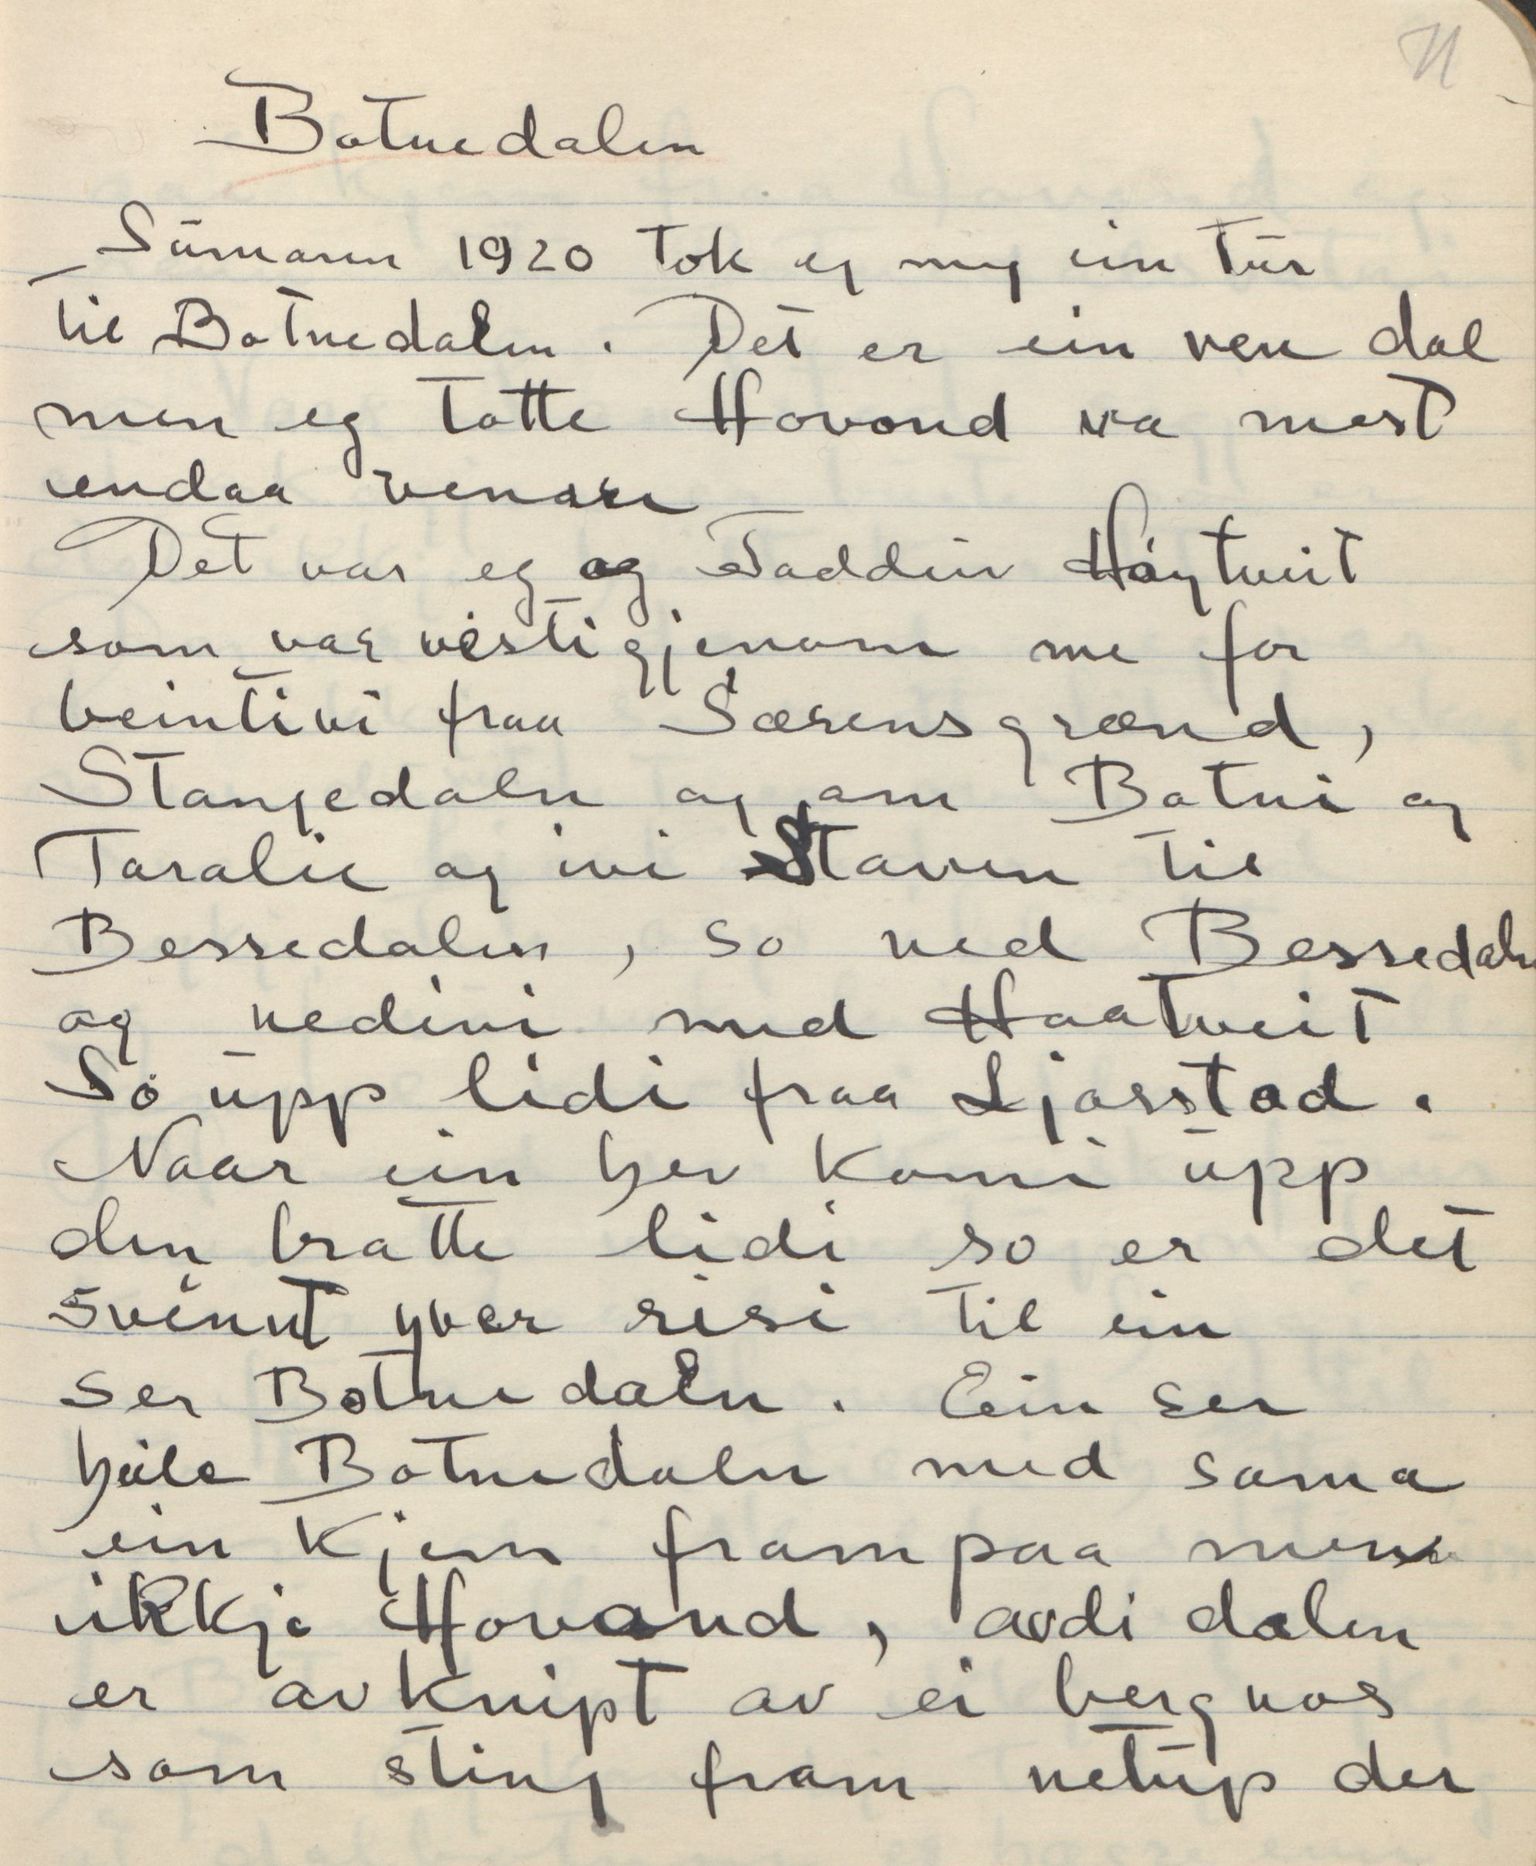 Botnedalen
Sumaren 1920 tok eg meg ein tur
til Botnedalen. Det er ein ven dal
men eg totte Hovond va mest
endaa venare
Det var eg og Taddeiv Høytveit
som var visti gjenom me for
beintivi fraa Sørensgrønd,
Stangedalen og om Botni og
Taralii og ivi Staven til
Bessedalen, so ned Bessedalen
og nedivi med Haatveit
So upp lidi fraa Ljosstad.
Naar ein hev komi upp
den bratte lidi so er det
svinnt yver risi til ein
ser Botnedaln. Ein ser
heile Botnedalen med sama
ein kjem frampaa men
ikkje Hovond, avdi dalen
er avknipt av ei bergnos
som sting fram netup der